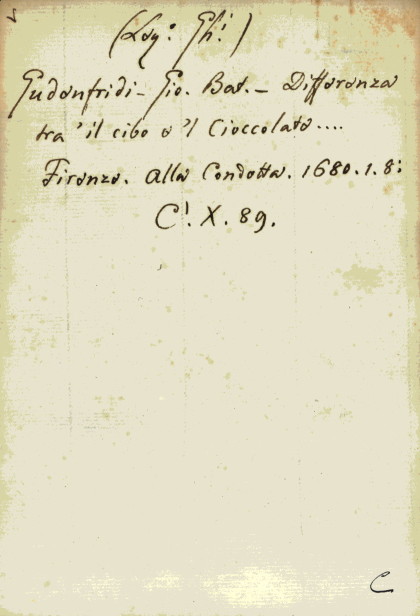 (Leg: Gh!)
Gudenfridi - Gio. Bat. - Differenza
tra 'il cibo e 'l Cioccolate....
Firenze. alla Condotta. 1680. 1. 8:
C!. X. 89.
C